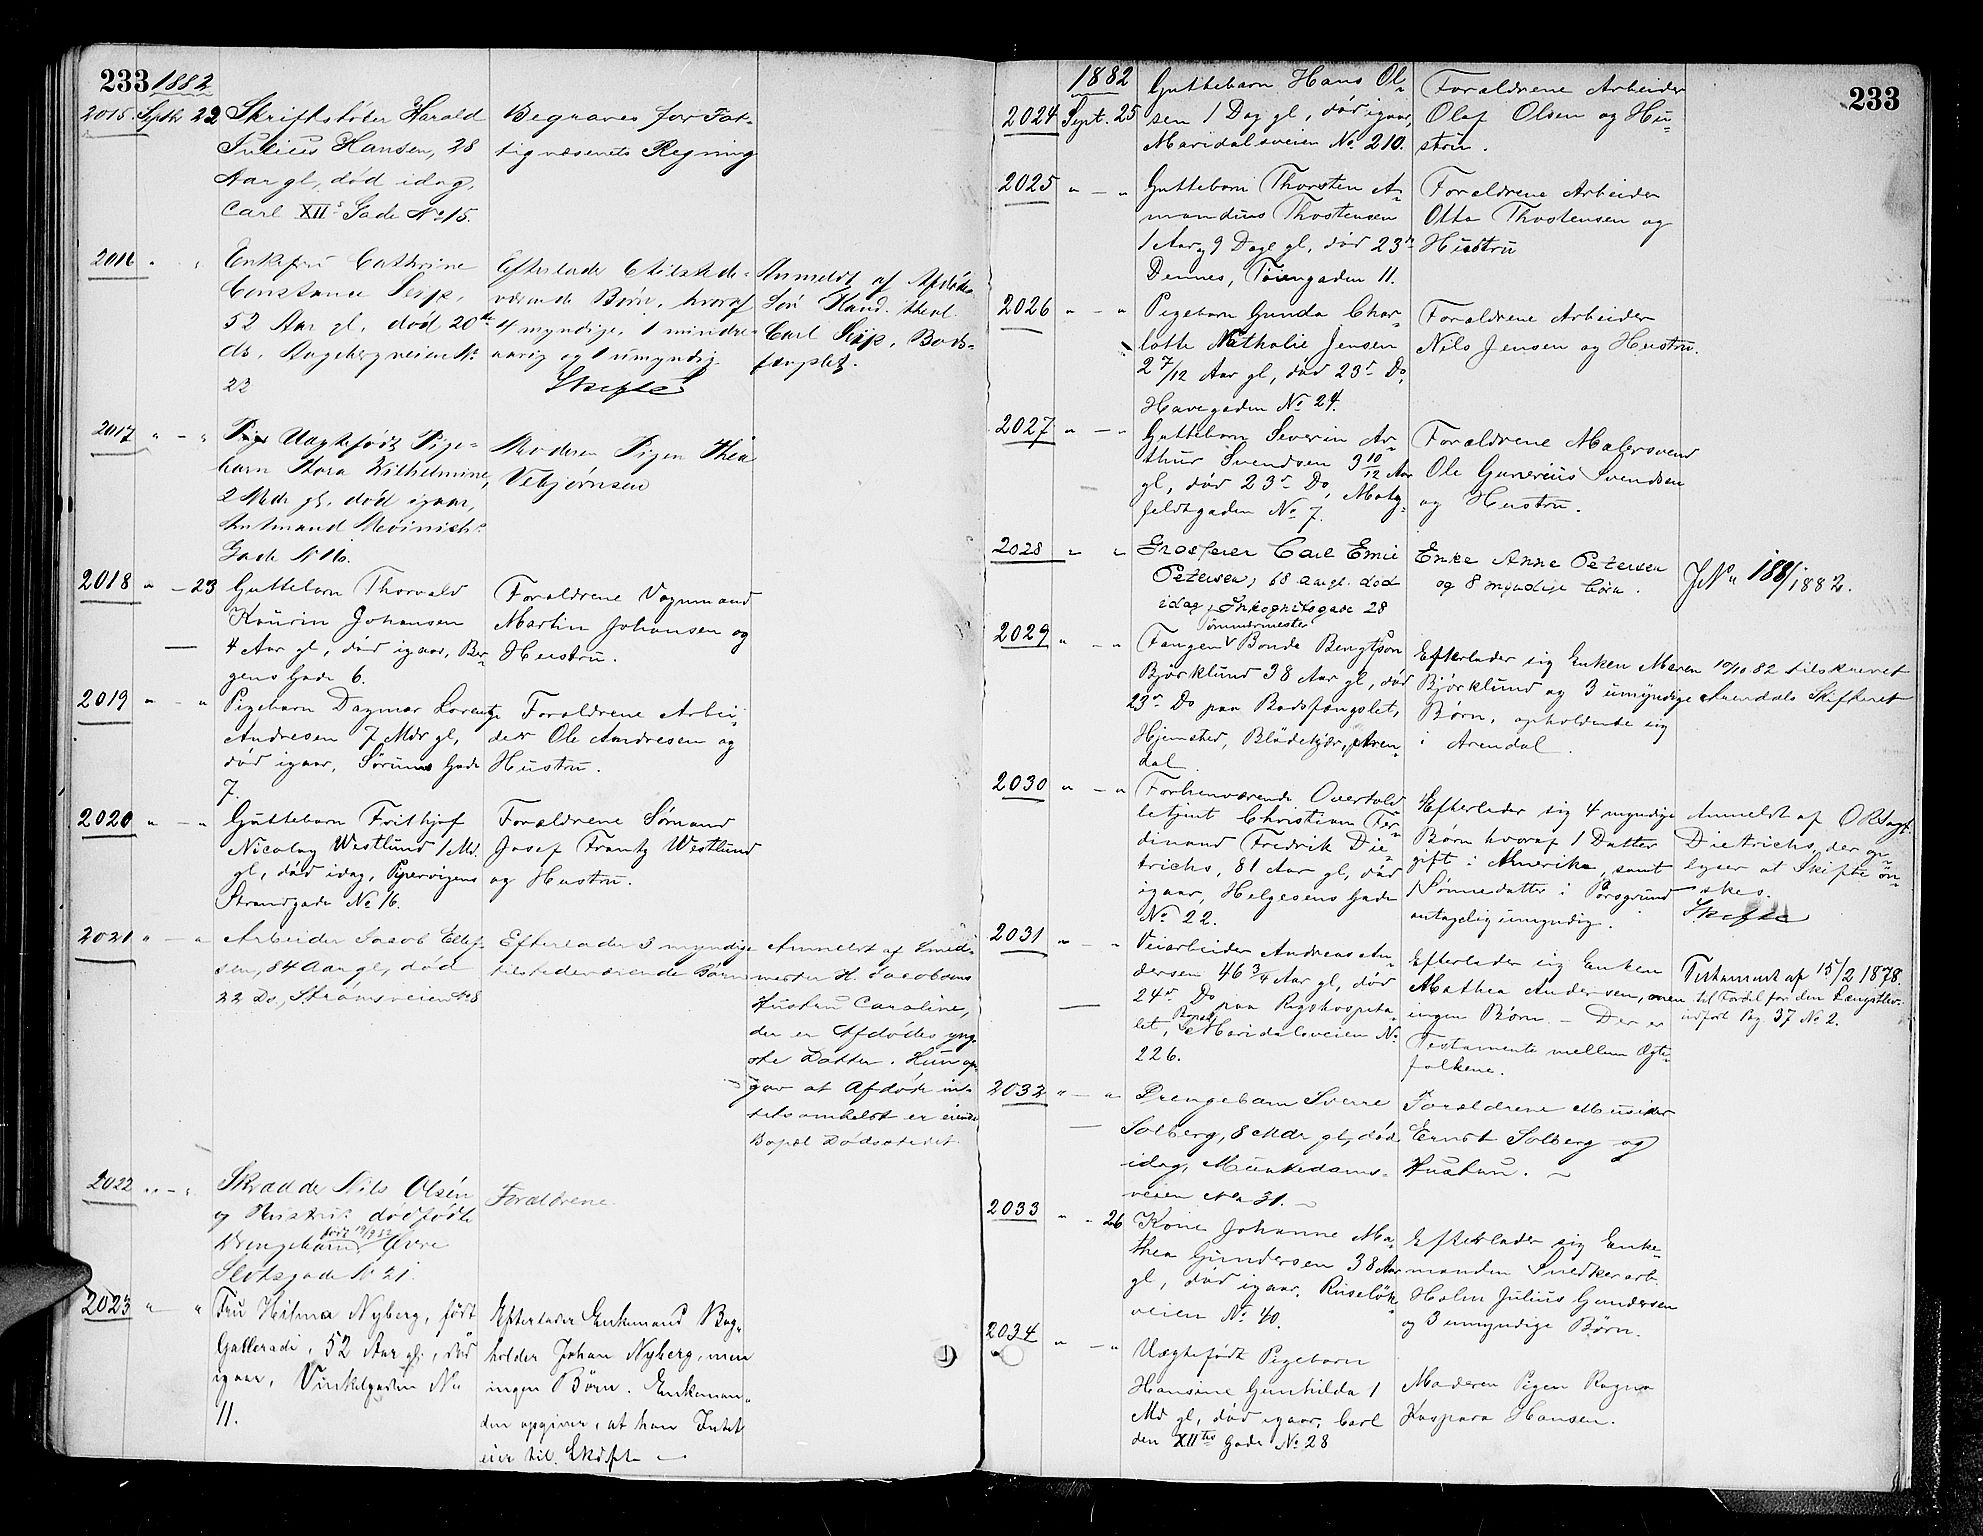 233 1882
2015. Septbr 22 Skriftstøber Harald
Julius Hansen, 28
Aar gl, død idag,
Carl XIIs Gade No 15.
Begraves for Fat-
tigvæsenets Regning
2016 " - " Enkefru Cathrine
Constance Seip,
52 Aar gl, død 20de
ds,
22
Efterlader 6 tilstede-
værende Børn, hvoraf
4 myndige, 1 mindre-
aarig og 1 umyndig.
Skifte
Anmeldt af Afdødes
Søn Kand. theol.
Carl Seip, Bods-
fængslet.
2017 " - " Uægtefødt Pige-
barn Thora Wilhelmine,
2 Mdr gl, død igaar,
Amtmand Meinichs
Gade No 16.
Moderen Pigen Thea
Vebjørnsen
2018 " - 23 Guttebarn Thorvald
Kaurin Johansen
4 Aar gl, død igaar, Ber-
gens Gade 6.
Forældrene Vognmand
Martin Johansen og
Hustru.
2019 " - " Pigebarn Dagmar Lorentze
Andresen 7 Mdr gl,
død igaar, Sørums Gade
7.
Forældrene Arbei-
der Ole Andresen og
Hustru.
2020 " - " Guttebarn Frithjof
Nicolay Westlund 1 Md.
gl, død idag, Pipervigens
Strandgade No 16.
Forældrene Sømand
Josef Frantz Westlund
og Hustru.
2021 " - " Arbeider Jacob Ellef-
sen, 84 Aar gl, død
22 Ds, Strømsveien No 8
Efterlader 3 myndige
tilstedeværende Børn
Anmeldt af Smed-
mester H. Jacobsens
Hustru Caroline,
der er Afdødes yng-
ste Datter. Hun op-
gav at Afdøde in-
tetsomhelst er eiende
Bopæl Dødsstedet.
2022 " - " Skrædder Nils Olsen
og Hustrus dødfødte
Drengebarn født 19/9 82 Øvre
Slotsgade No 21.
Forældrene
2023 " - " Fru Hilma Nyberg, født
Galleradi, 52 Aar gl, død
igaar, Vinkelgaden No
11.
Efterlader Enkemand Bog-
holder Johan Nyberg, men
ingen Børn. Enkeman-
den opgiver, at han Intet
eier til Skifte
1882 233
2024 Sept. 25 Guttebarn Hans Ol-
sen 1 Dag gl, død igaar,
Maridalsveien No 210.
Forældrene Arbeider
Olaf Olsen og Hu-
stru.
2025 " - " Guttebarn Thorsten A-
mandus Thorstensen
1 Aar 9 Dage gl, død 23de
Dennes, Tøiengaden 11.
Forældrene Arbeider
Otto Thorstensen og
Hustru
2026 " - " Pigebarn Gunda Char-
lotte Nathalie Jensen
2 7/12 Aar gl, død 23de Ds,
Havegaden No 24.
Forældrene Arbeider
Nils Jensen og Hustru.
2027 " - " Guttebarn Severin Ar-
thur Svendsen 3 10/12 Aar
gl, død 23de Ds, Motz-
feldtgaden No 7.
Forældrene Malersvend
Ole Gunerius Svendsen
og Hustru.
2028 " " Grosserer Carl Emil
Petersen, 68 Aar gl. død
idag, Inkognitogade 28
Enke Anne Petersen
og 8 myndige Børn.
J No 1881/1882.
2029 " - " Fangen Tømmermester Bonde Bengtson
Bjørklund 38 Aar gl, død
23de Ds paa Bodsfængslet,
Hjemsted, Blødekjær, Aren-
dal
Efterlader sig Enken Maren
Bjørklund og 3 umyndige
Børn, opholdende sig
i Arendal.
10/10 82 tilskrevet
Arendals Skifteret
2030 " - " Forhenværende Overtold-
betjent Christian Fer-
dinand Fredrik Die-
trichs, 81 Aar gl, død
igaar, Helgesens Gade
No 22.
Efterlader sig 4 myndige
Børn hvoraf 1 Datter
gift i Amerika, samt
1 Sønnedatter i Porsgrund
antagelig umyndig.
Anmeldt af O.R.Sagf.
Dietrichs, der op-
lyser at Skifte øn-
skes.
Skifte
2031 " - " Veiarbeider Andreas An-
dersen 46 3/4 Aar gl, død
24de Ds paa Rigshospita-
let, Bopæl Maridalsveien No
226.
Efterlader sig Enken
Mathea Andersen, men
ingen Børn - Der er
Testamente mellem Ægte-
folkene.
Testament af 15/2 1878
til Fordel for den Længstlev.
indført Pag 37 No 2.
2032 " - " Drengebarn Sverre
Solberg, 8 Mdr gl, død
idag, Munkedams-
veien No 31.
Forældrene Musiker
Ernst Solberg og
Hustru.
2033 " " 26 Kone Johanne Ma-
thea Gundersen 38 Aar
gl, død igaar, Ruseløk-
veien No 40.
Efterlader sig Enke-
manden Snedkerarb.
Holm Julius Gundersen
og 3 umyndige Børn.
2034 " - " Uægtefødt Pigebarn
Hansine Gunhilda 1
Md gl, død igaar, Carl
den XIItes Gade No 28
Moderen Pigen Ragna
Kaspara Hansen.